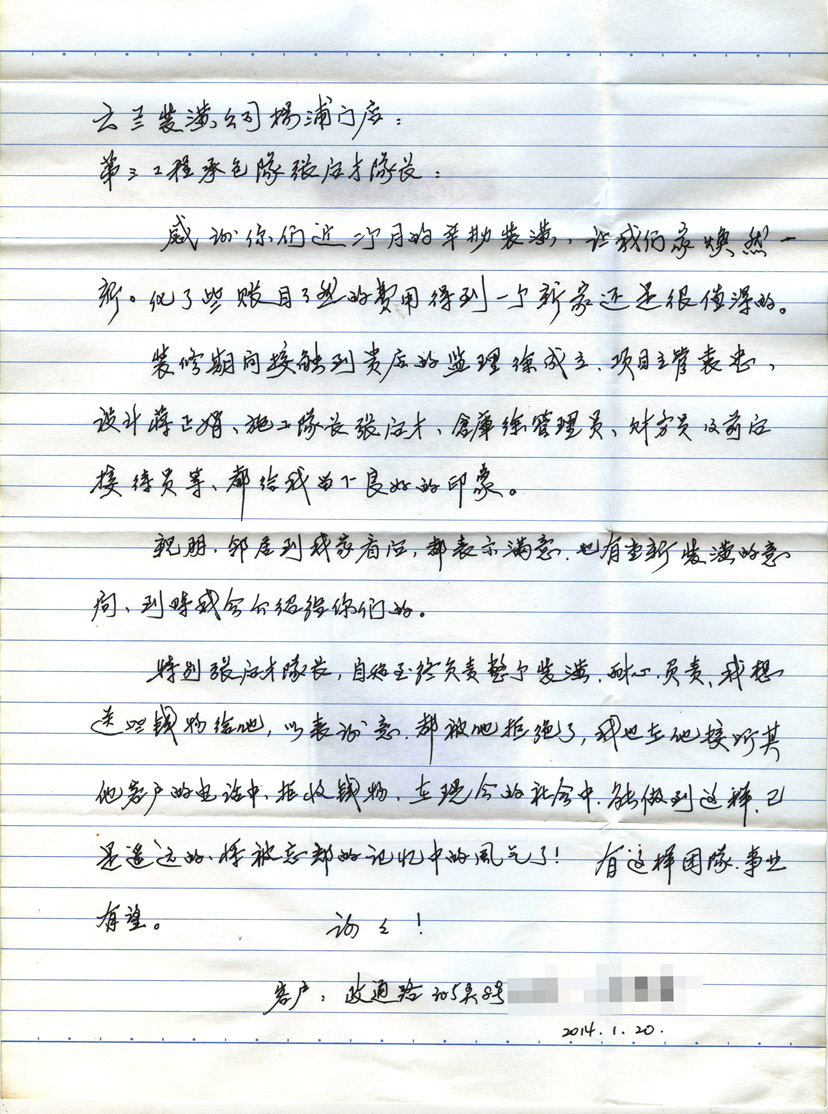 云兰装潢公司杨浦门店：
第三工程承包队张应才队长：
感谢你们近二个月的辛勤装潢、让我们家焕然一
新。化了些账目了然的费用得到一个新家还是很值得的。
装修期间接触到贵店的监理徐成立、项目主管袁忠、
设计蒋正娟、施工队长张应才、仓库徐管理员、财务员及前台
接待员等、都给我留下良好的印象。
亲朋、邻居到我家看后，都表示满意、也有重新装潢的意
向、到时我会介绍给你们的。
特别张应才队长，自始至终负责整个装潢、耐心、负责、我想
送些钱物给他，以表谢意、都被他拒绝了，我也在他接听其
他客户的电话中、拒收钱物、在现今的社会中、能做到这样、已
是遥远的、将被忘却的记忆中的风气了！ 有这样团队、事业
有望。 谢谢！
客户：政通路205弄8号
2014.1.20.